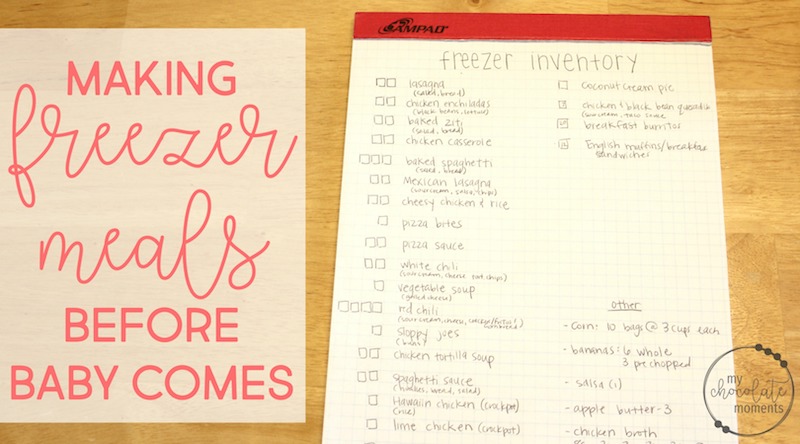 MAKING
freezer
meals
BEFORE
BABY COMES
AMPAD
freezer inventory
lasagna
(salad, bread)
chicken enchiladas
(black beans, )
baked ziti
(salad, bread)
chicken casserole
baked spaghetti
(salad, bread)
Mexican lasagna
(sour cream, salsa, chips)
cheesy chicken & rice
pizza bites
pizza sauce
white chili
(sour cream, cheese, chips)
vegetable soup
(grilled cheese)
red chili
(sour cream, cheese,
cornbread)
sloppy joes
(buns)
chicken tortilla soup
spaghetti sauce
(noodles, bread, salad)
Hawaiin chicken (crockpot)
(rice)
lime chicken (crockpot)
coconut cream pie
chicken & black bean
(sour cream, )
breakfast burritos
English muffins/breakfas
sandwiches
other
- corn: 10 bags @ 3 cups each
- bananas: 6 whole
3 pre chopped
- salsa (1)
- apple butter - 3
- chicken broth
my
chocolate
moments